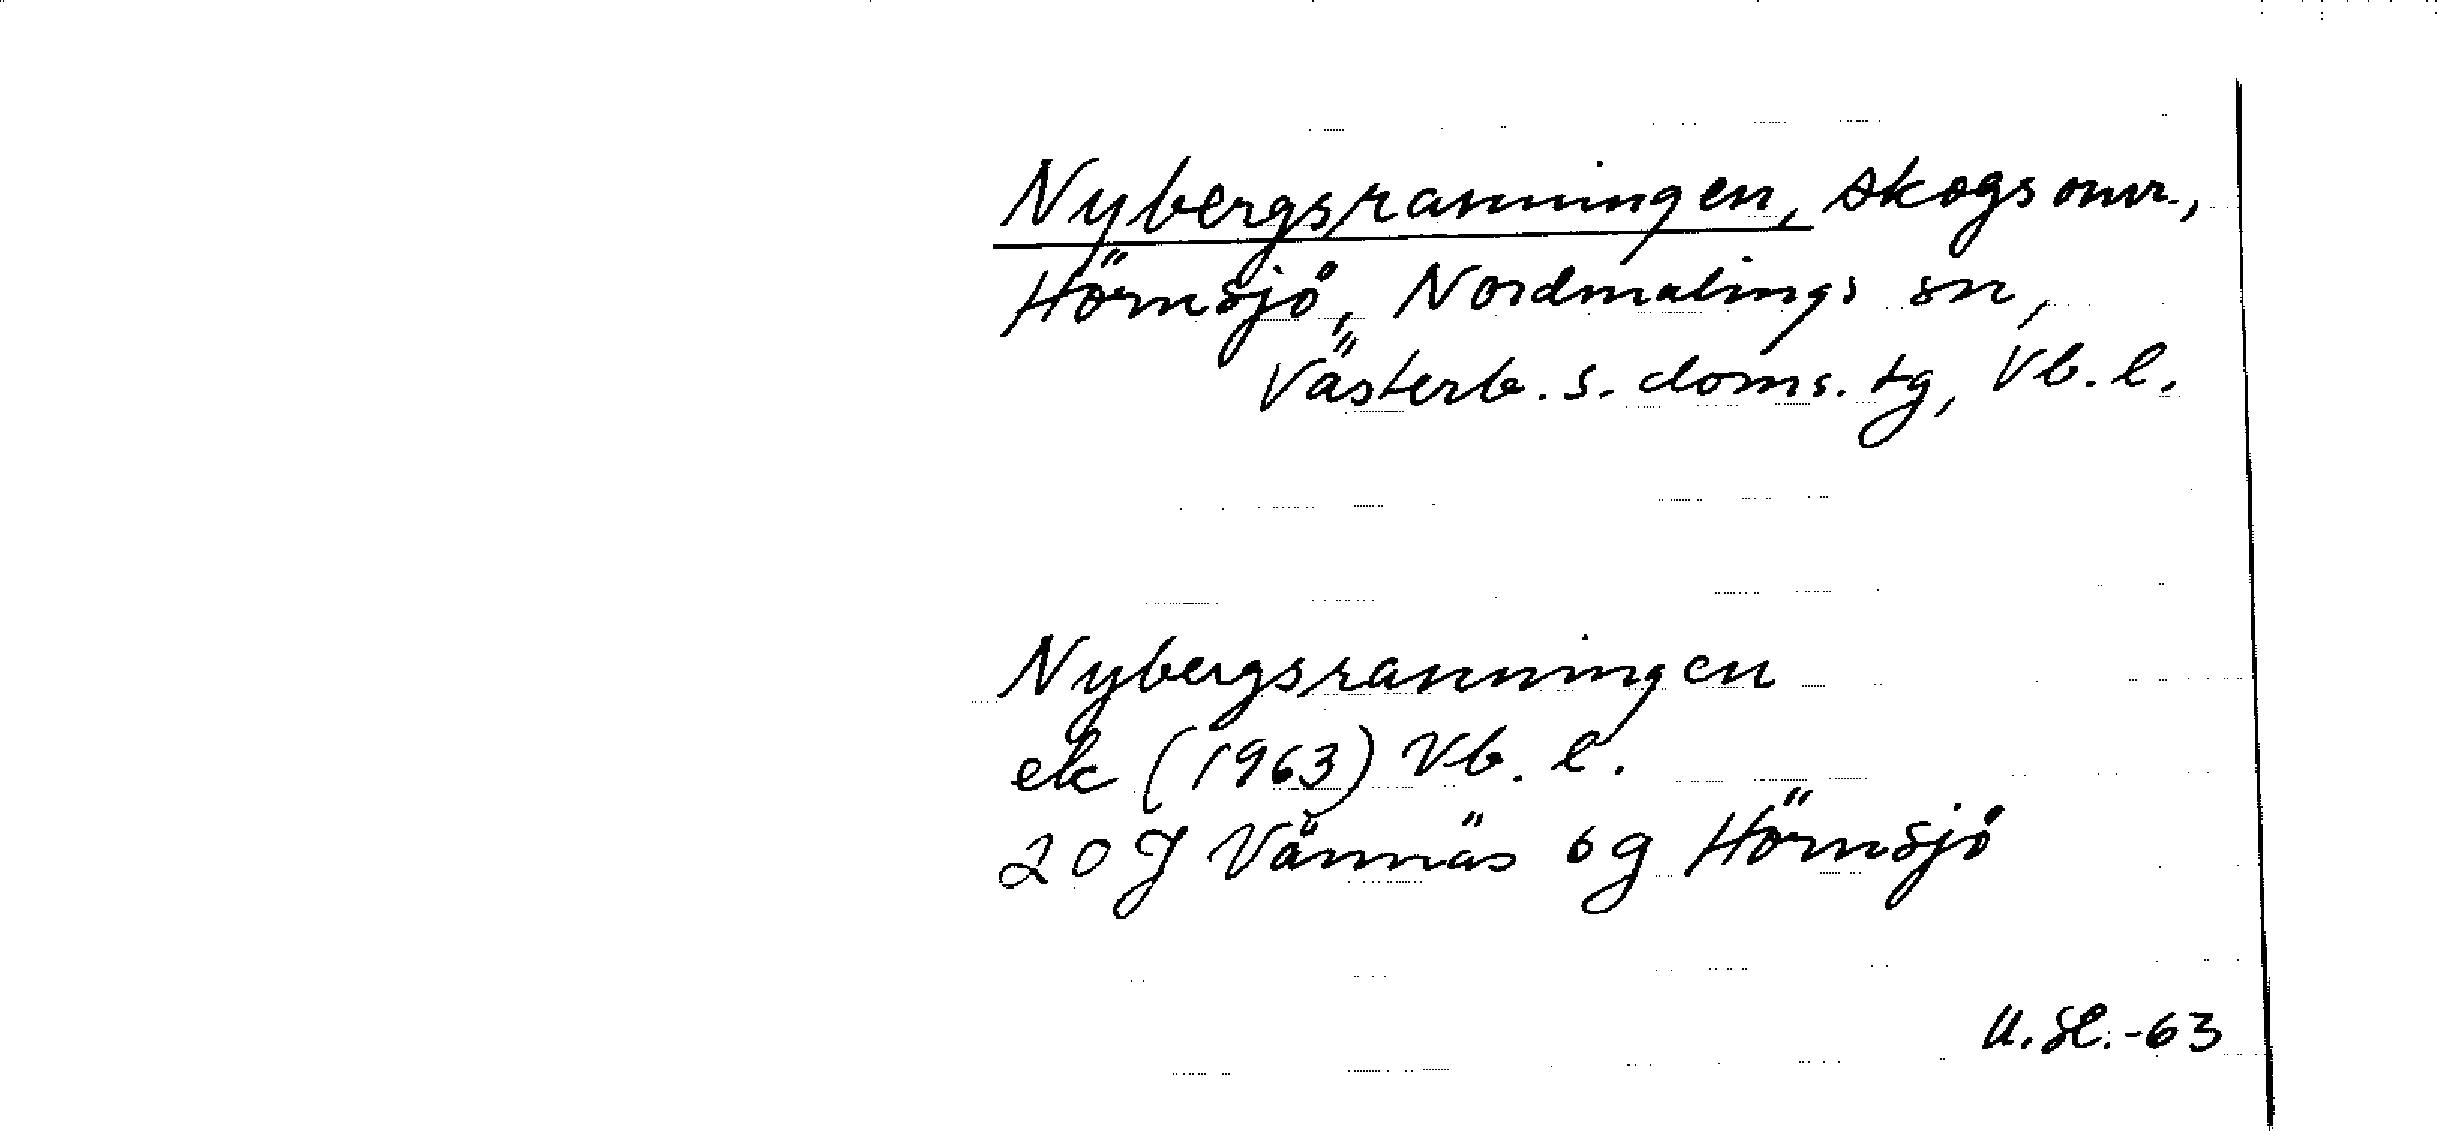 Nybergsranningen, skogsomr.,
Hörnsjö, Nordmalings sn,
Västerb. s. doms. tg, Vb. l.
Nybergsranningen
ek (1963) Vb. l.
20 J Vännäs 6g Hörnsjö
-63